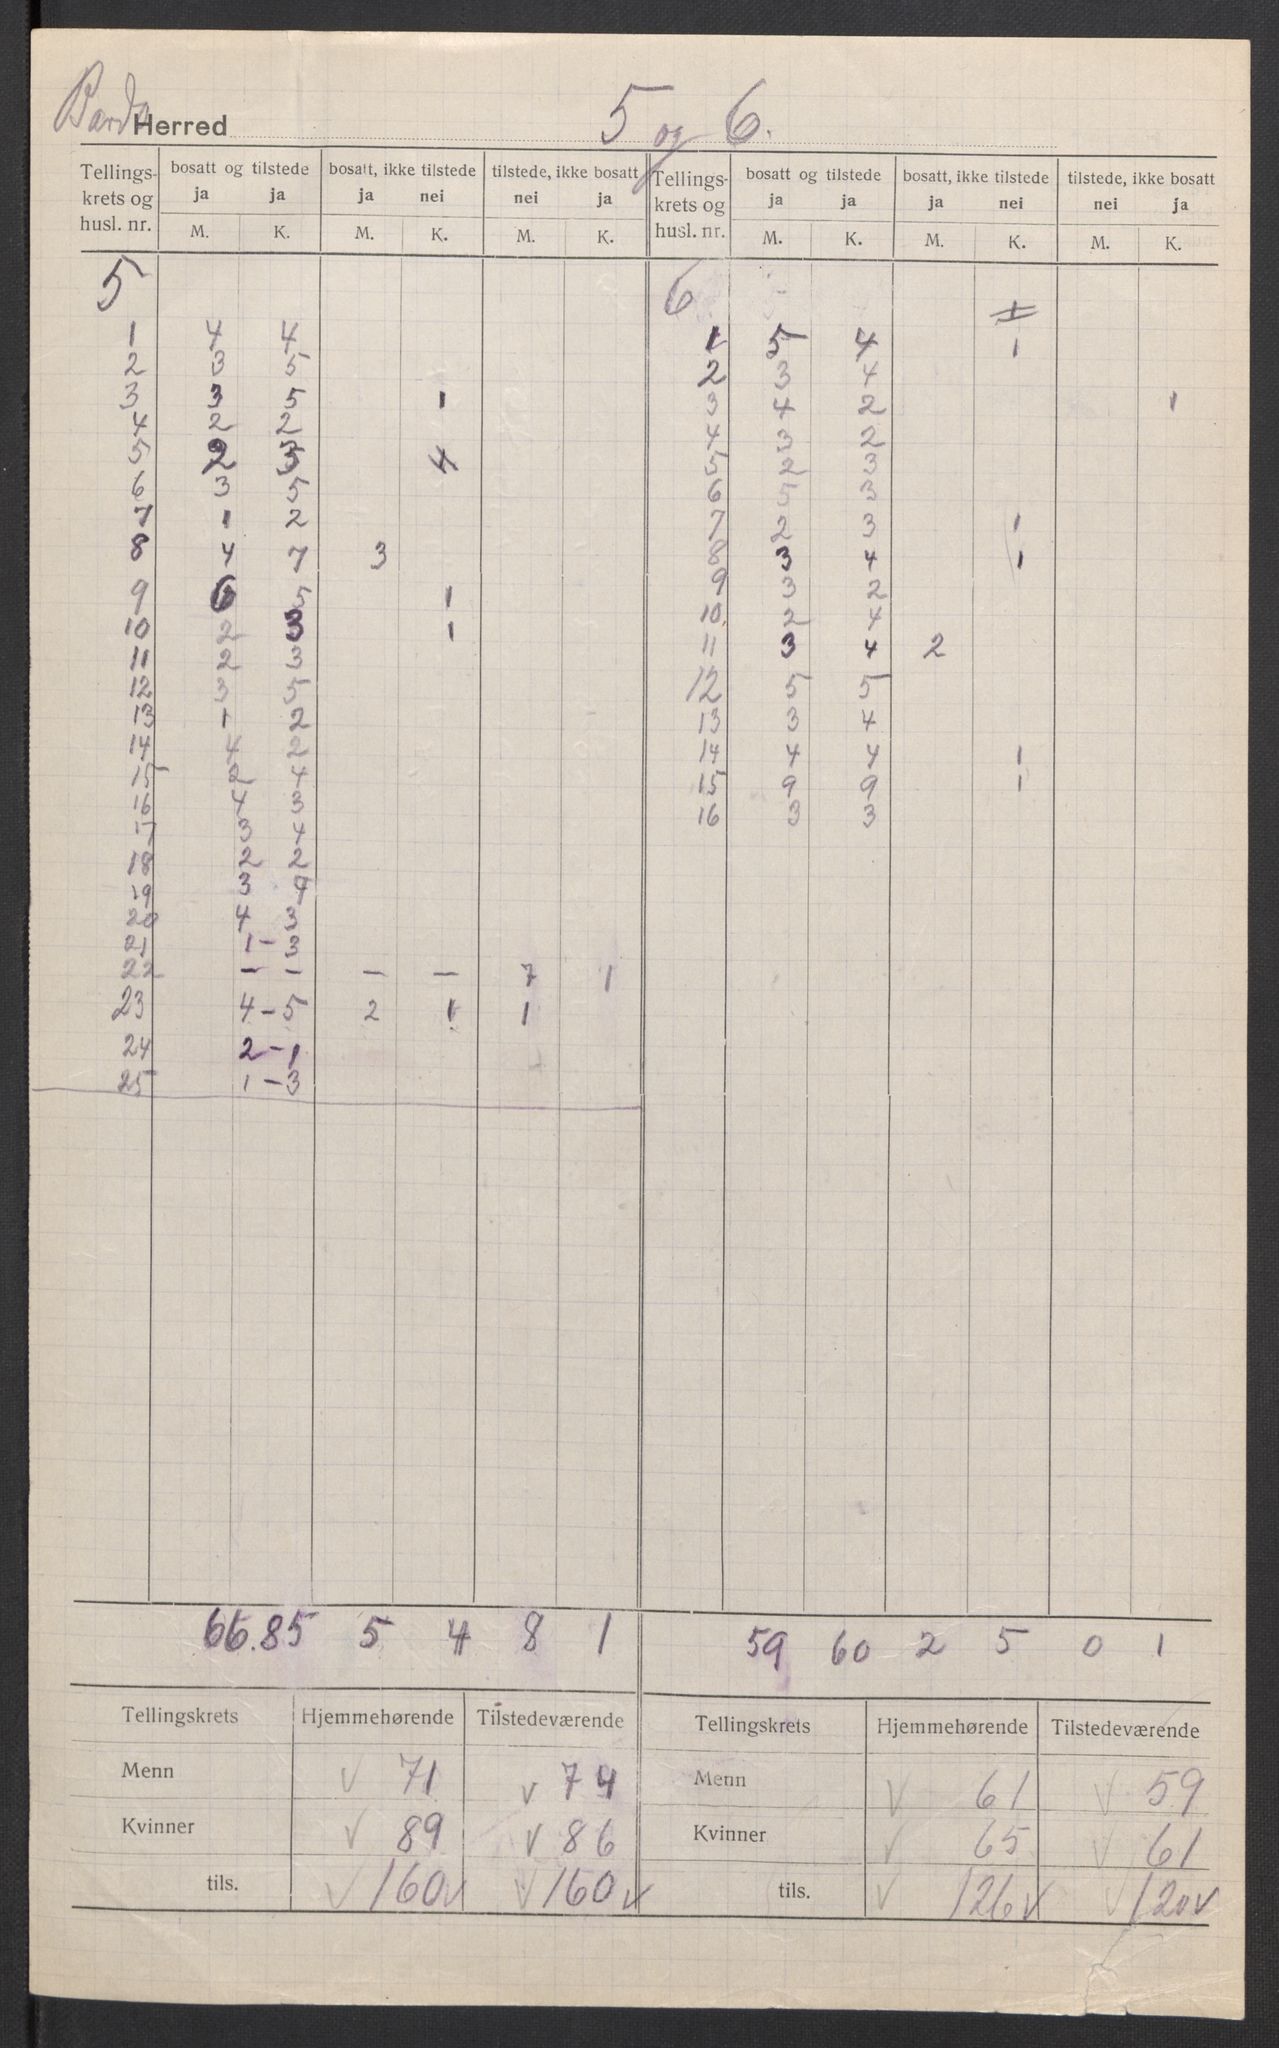 Bardo Herred 5 og 6.
Tellings- krets og husl. nr. | bosatt og tilstede ja ja M. K. | bosatt, ikke tilstede ja nei M. K. | tilstede, ikke bosatt nei ja M. K. | Tellings- krets og husl. nr. | bosatt og tilstede ja ja M. K. | bosatt, ikke tilstede ja nei M. K. | tilstede, ikke bosatt nei ja M. K.
5
1 4 4
2 3 5
3 3 5 1
4 2 2
5 2 3
6 3 5
7 1 2
8 4 7 3
9 6 5 1
10 2 3 1
11 2 3
12 3 5
13 1 2
14 4 2
15 2 4
16 4 3
17 3 4
18 2 2
19 3
20 4 3
21 1 - 3
22 - - - - 7 1
23 4 - 5 2 1 1
24 2 - 1
25 1 - 3
66. 85 5 4 8 1
Tellingskrets Hjemmehørende Tilstedeværende
Menn √ 71 √ 74
Kvinner √ 89 √ 86
tils. √ 160 √ √ 160 √
6
1 5 4 1
2 3 4
3 4 2 1
4 3 2
5 2 3
6 5 3
7 2 3 1
8 3 4 1
9 3 2
10 2 4
11 3 4 2
12 5 5
13 3 4
14 4 4 1
15 9 9 1
16 3 3
59 60 2 5 0 1
Tellingskrets Hjemmehørende Tilstedeværende
Menn √ 61 √ 59
Kvinner √ 65 √ 61
tils. √ 126 √ √ 120 √